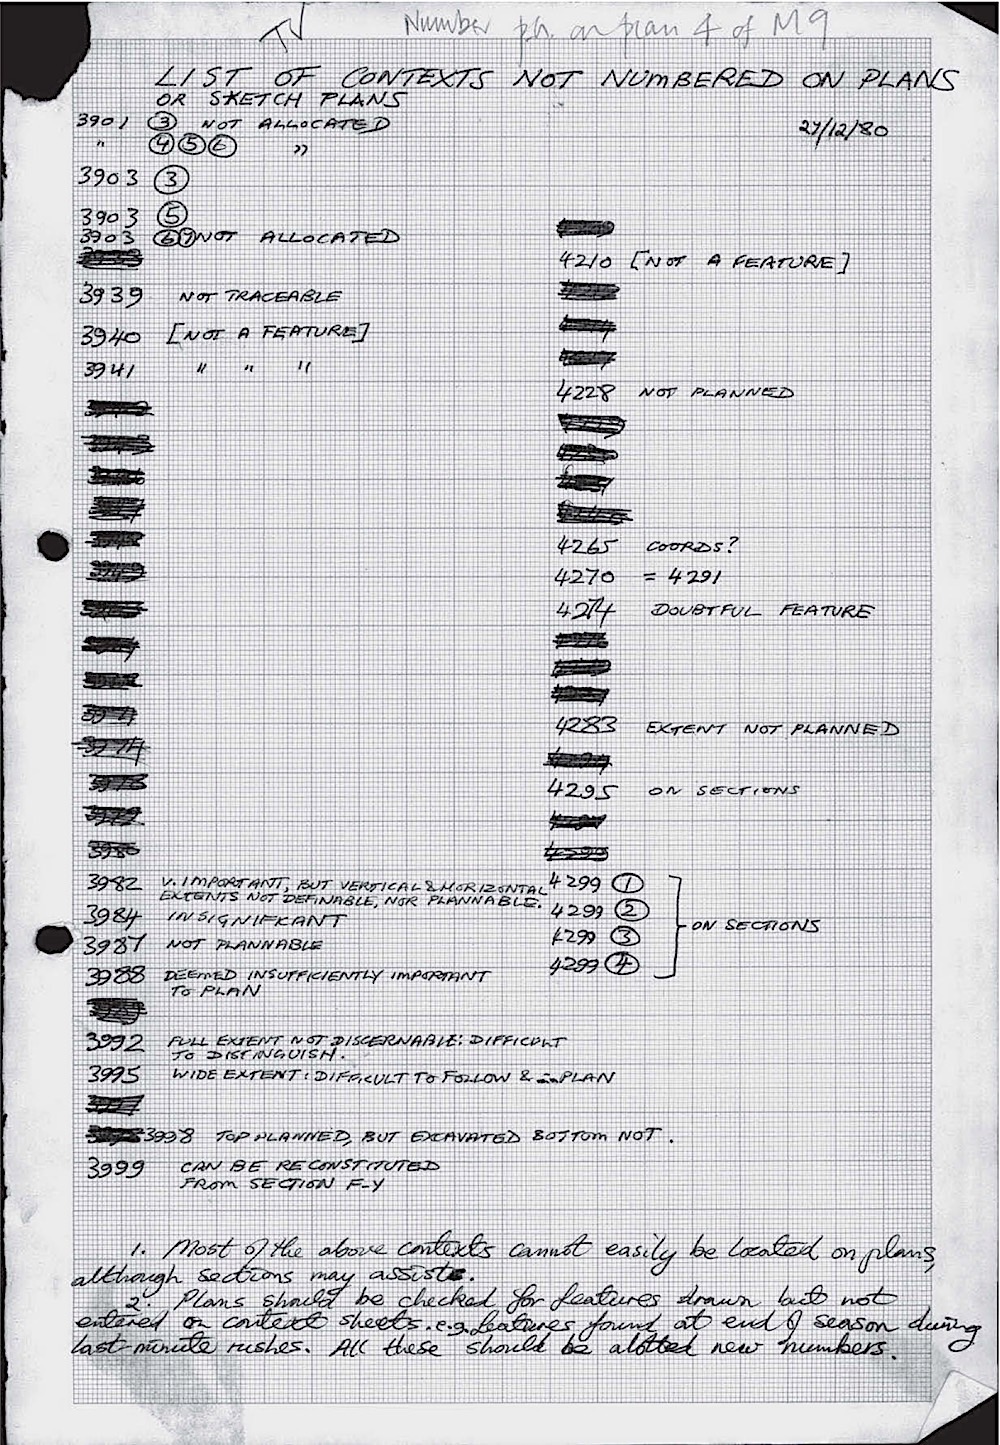 Number ph. on plan 4 of M9
LIST OF CONTEXTS NOT NUMBERED ON PLANS
OR SKETCH PLANS
27/12/80
3901 ③ NOT ALLOCATED
" ④⑤⑥ "
3903 ③
3903 ⑤
3903 ⑥⑦ NOT ALLOCATED
3939 NOT TRACEABLE
3940 [NOT A FEATURE]
3941 " " "
3982 V. IMPORTANT, BUT VERTICAL & HORIZONTAL
EXTENTS NOT DEFINABLE, NOR PLANNABLE.
3984 INSIGNIFICANT
3987 NOT PLANNABLE
3988 DEEMED INSUFFICIENTLY IMPORTANT
TO PLAN
3992 FULL EXTENT NOT DISCERNABLE: DIFFICULT
TO DISTINGUISH.
3995 WIDE EXTENT: DIFFICULT TO FOLLOW & PLAN
3998 TOP PLANNED, BUT EXCAVATED BOTTOM NOT.
3999 CAN BE RECONSTITUTED
FROM SECTION F-Y
4210 [NOT A FEATURE]
4228 NOT PLANNED
4265 COORDS?
4270 = 4291
4274 DOUBTFUL FEATURE
4283 EXTENT NOT PLANNED
4295 ON SECTIONS
4299 ①
4299 ②
4299 ③
4299 ④
ON SECTIONS
1. Most of the above contexts cannot easily be located on plans,
although sections may assist.
2. Plans should be checked for features drawn but not
entered on context sheets. e.g. features found at end of season during
last-minute rushes. All these should be allotted new numbers.